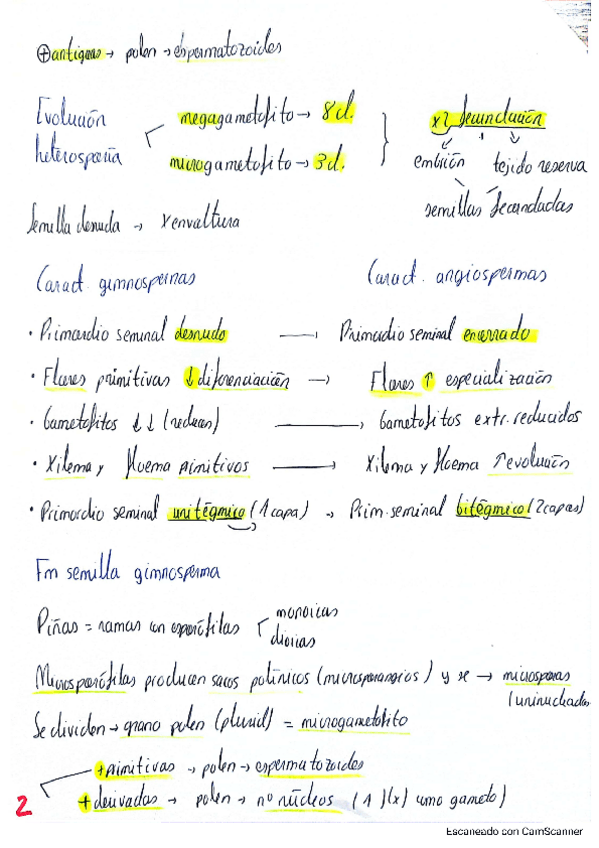 ⊕ antiguas → polen → espermatozoides
Evolución heterosporia
megagametofito → 8 cl.
microgametofito → 3 cl.
x2 fecundación
embrión
tejido reserva
semillas fecundadas
Semilla desnuda → X envoltura
Caract. gimnospermas
Caract. angiospermas
· Primordio seminal desnudo → Primordio seminal encerrado
· Flores primitivas ↓ diferenciación → Flores ↑ especialización
· Gametofitos ↓↓ (reducen) → Gametofitos extr. reducidos
· Xilema y floema primitivos → Xilema y floema ↑ evolución
· Primordio seminal unitégmico (1 capa) → Prim. seminal bitégmico (2 capas)
Fm semilla gimnosperma
Piñas = ramas con esporófilas
monoicas
dioicas
Microsporófilas producen sacos polínicos (microsporangios) y se → microsporas
(uninucleadas
Se dividen → grano polen (plurid) = microgametofito
+ primitivas → polen → espermatozoides
+ derivadas → polen → nº núcleos (1)(x) como gameto)
2
Escaneado con CamScanner